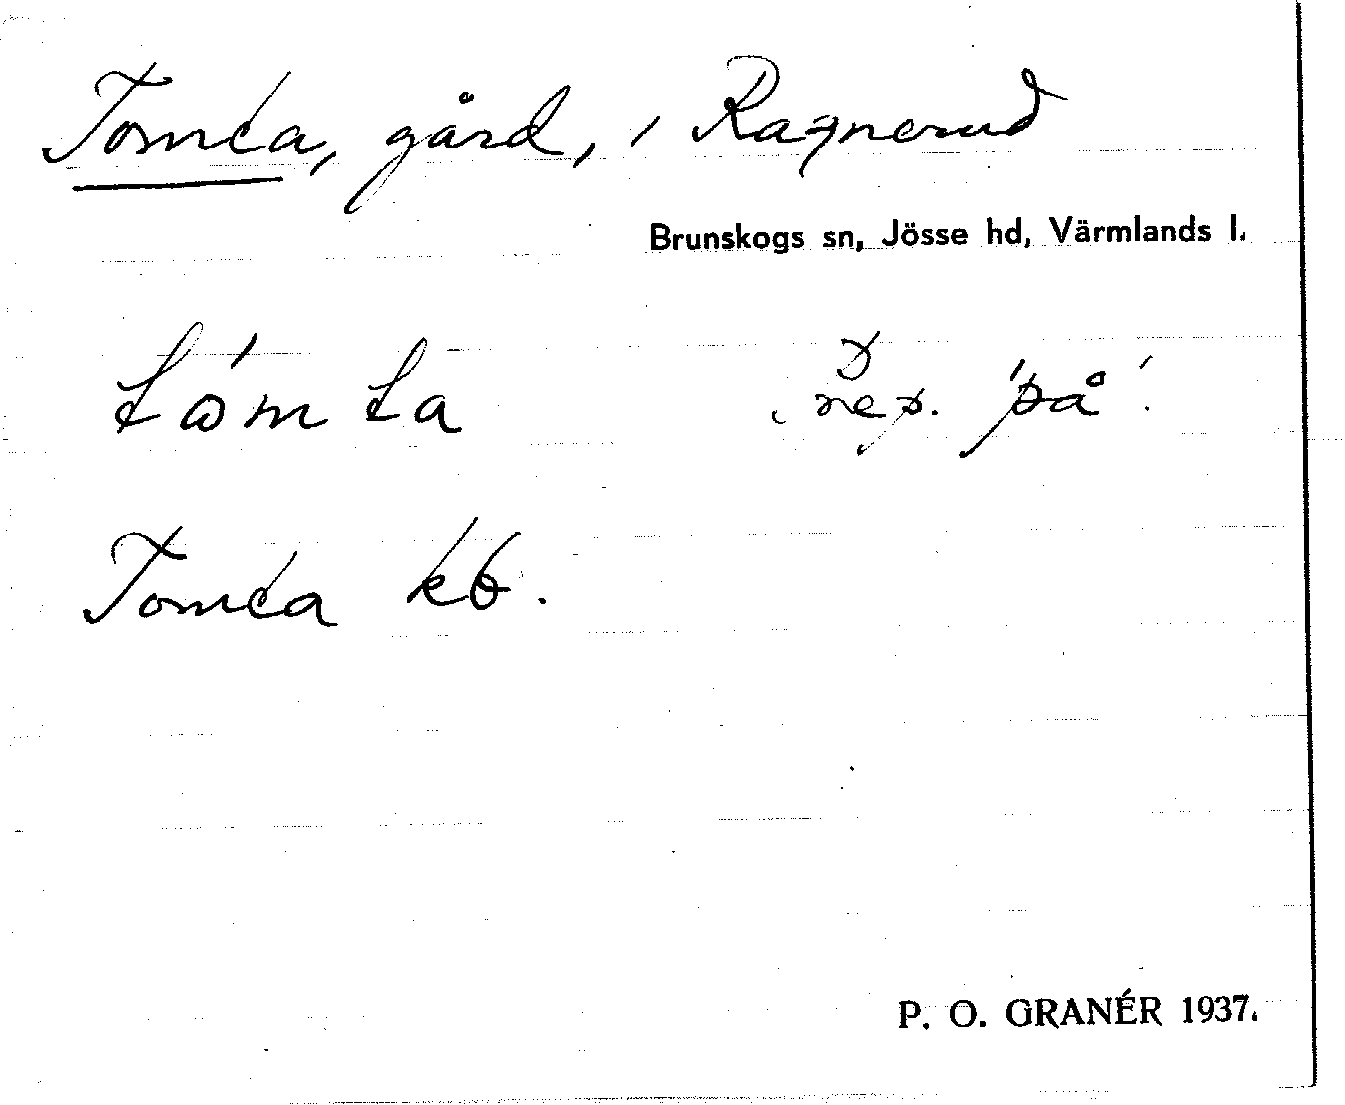 Tomta, gård, i Ragnerud
Brunskogs sn, Jösse hd, Värmlands l.
tómta prep. 'på'.
Tomta kb.
P. O. GRANÉR 1937.